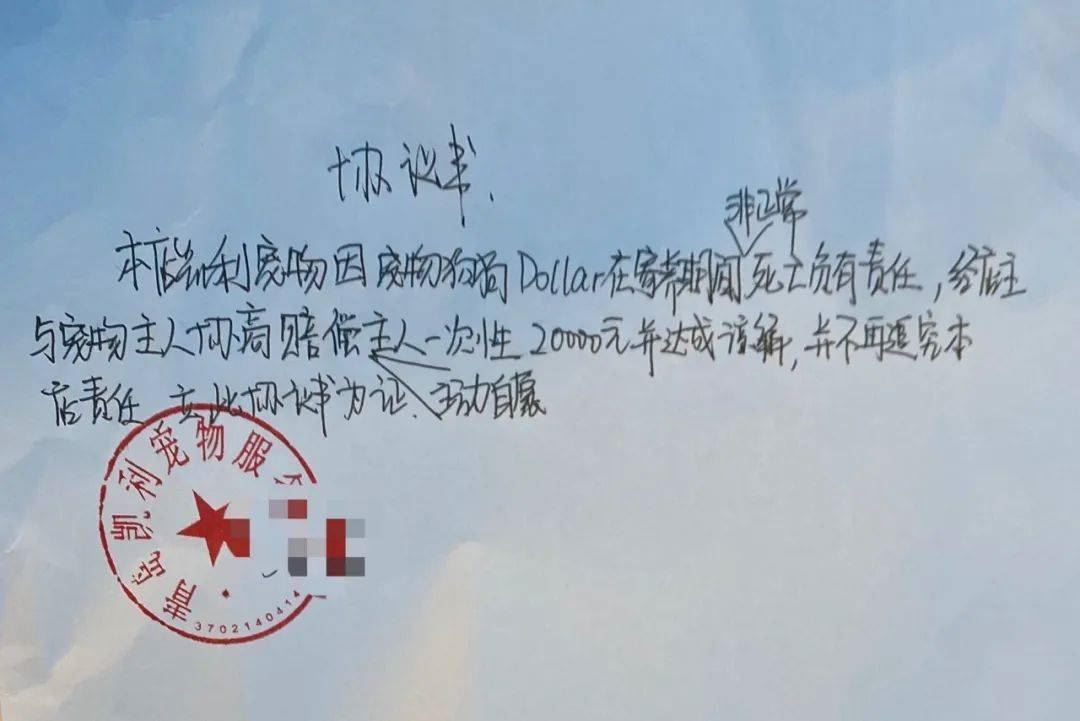 协议书.
非正常
本店凯利宠物因宠物狗狗Dollar在寄养期间死亡负有责任，经店主
与宠物主人协商赔偿主人一次性20000元并达成谅解，并不再追究本
店责任 立此协议书为证、主动自愿
青岛凯利宠物服
3702140414